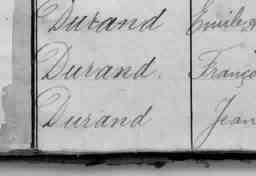 Durand Emile
Durand. Franço
Durand Jean